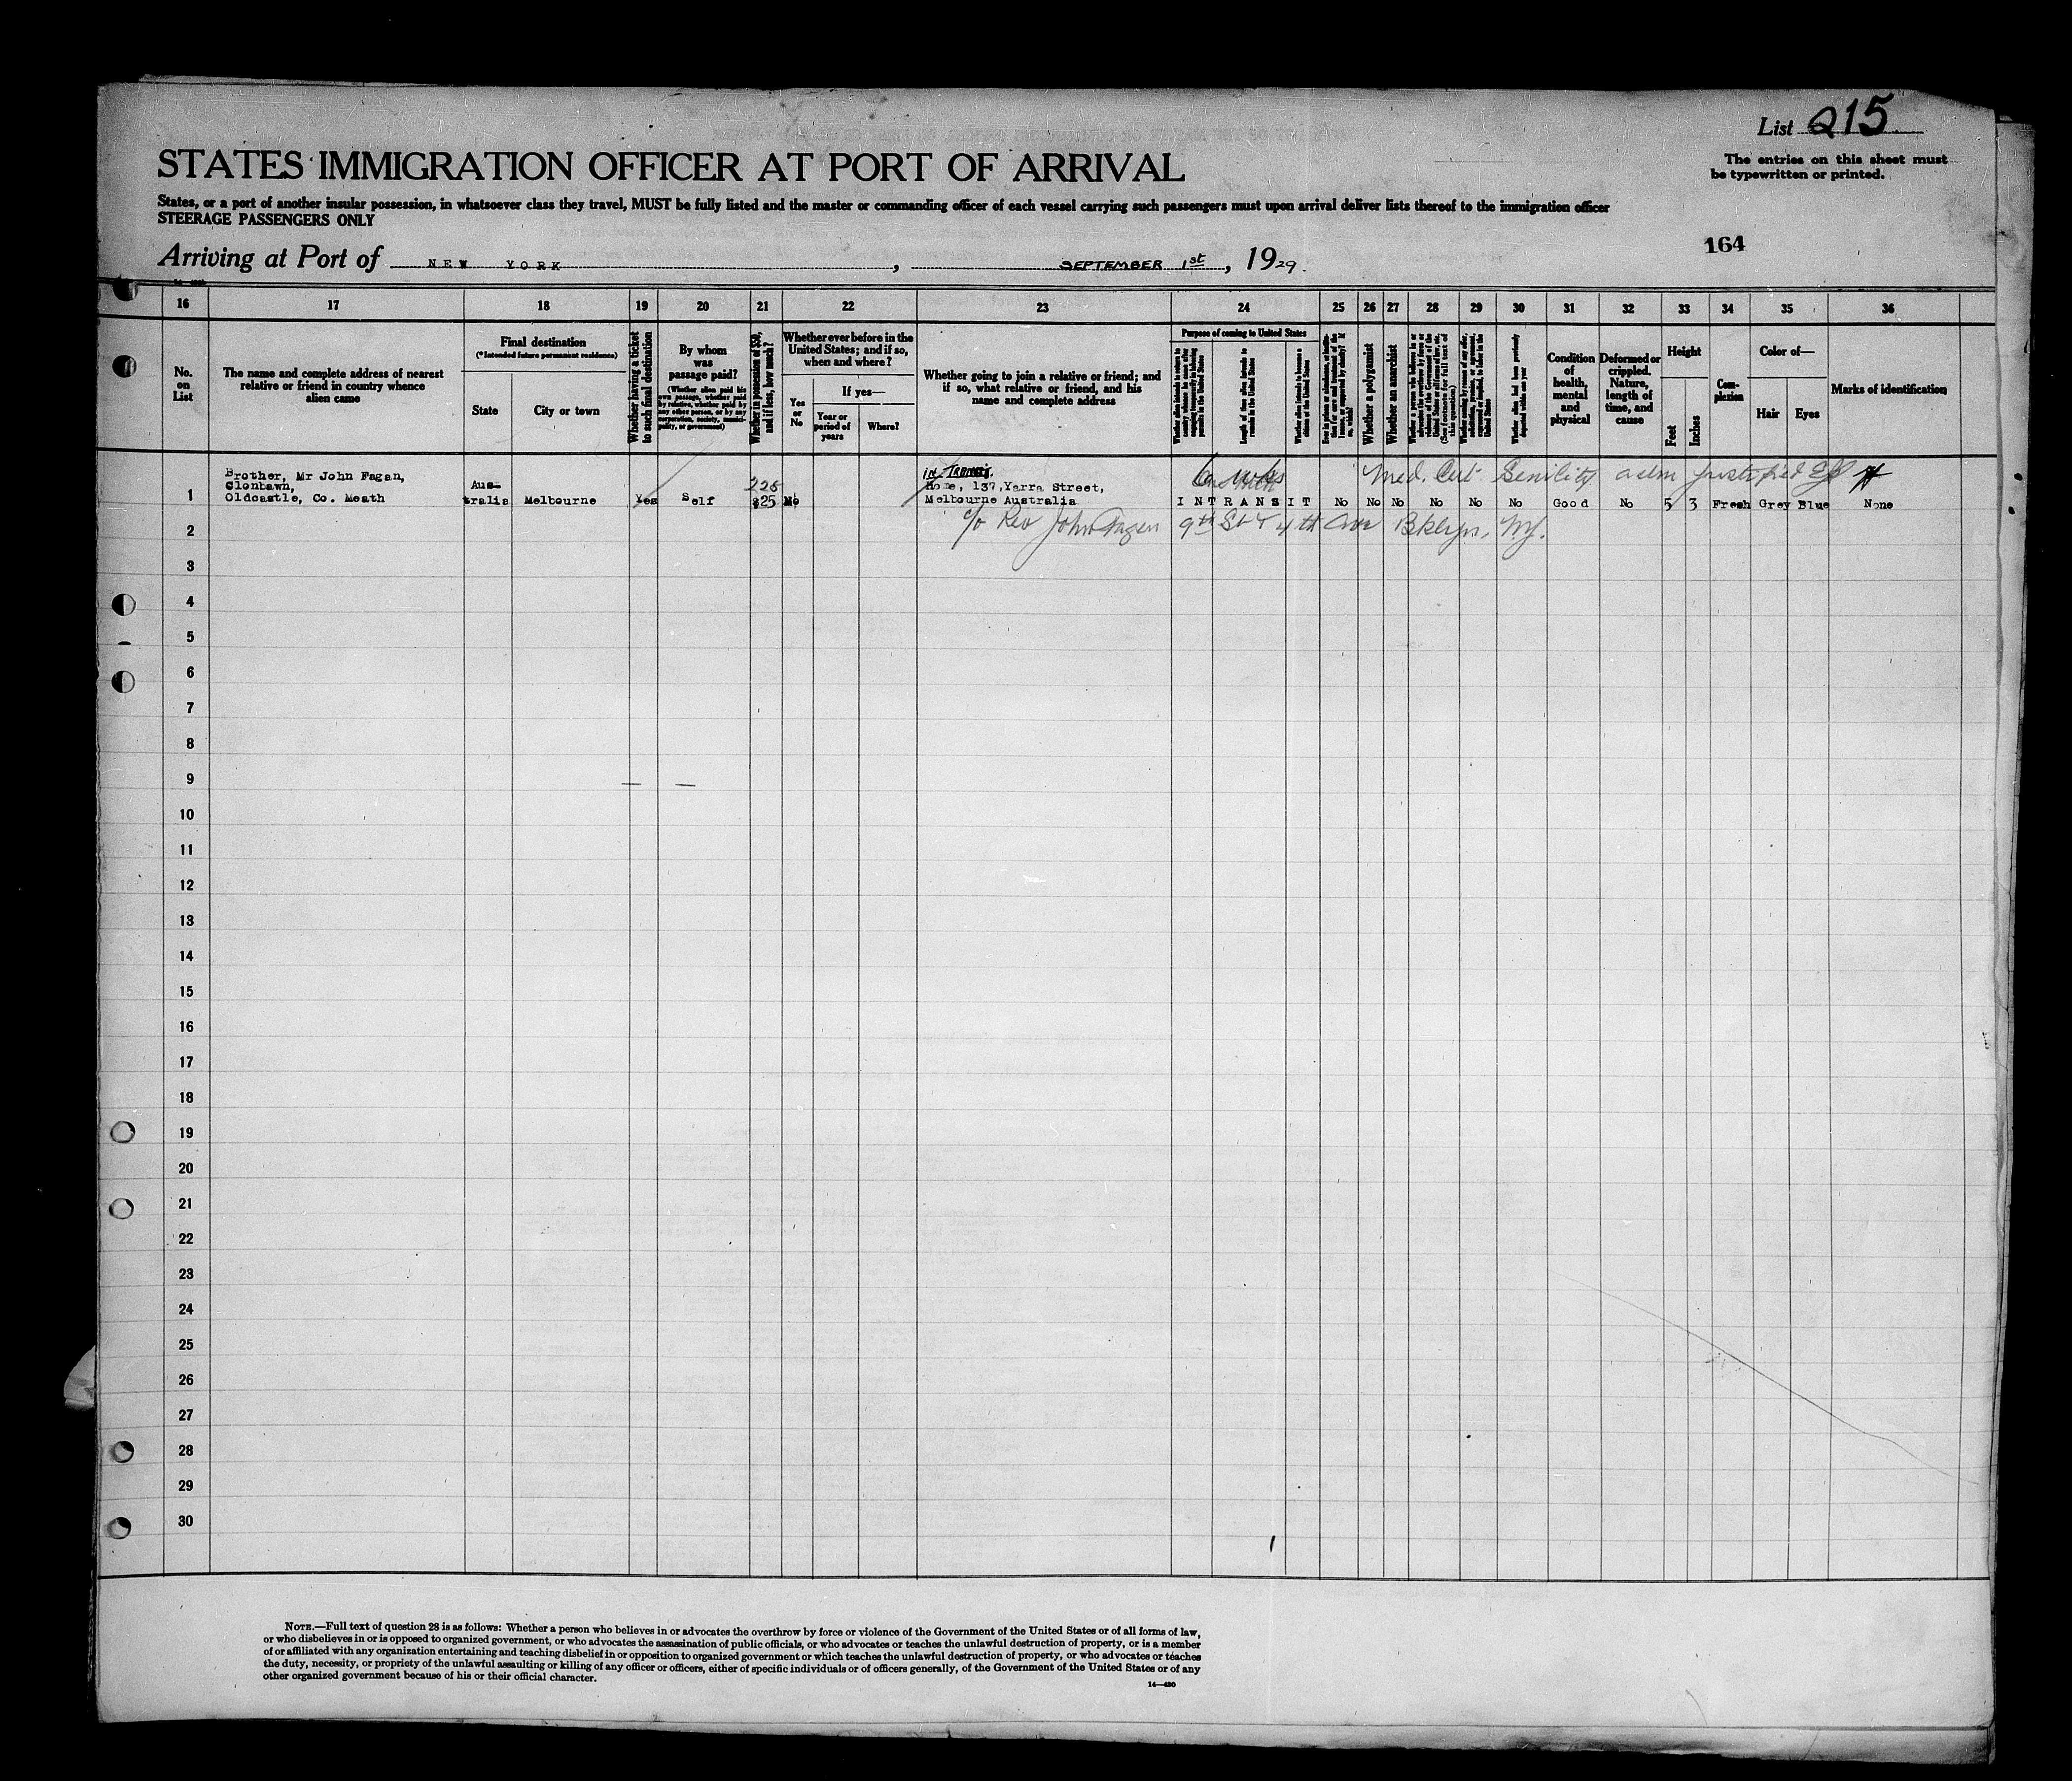 List 215
The entries on this sheet must
be typewritten or printed.
STATES IMMIGRATION OFFICER AT PORT OF ARRIVAL
States, or a port of another insular possession, in whatsoever class they travel, MUST be fully listed and the master or commanding officer of each vessel carrying such passengers must upon arrival deliver lists thereof to the immigration officer
STEERAGE PASSENGERS ONLY
164
Arriving at Port of NEW YORK, SEPTEMBER 1st, 1929.
16 17 18 19 20 21 22 23 24 25 26 27 28 29 30 31 32 33 34 35 36
No.
on
List
The name and complete address of nearest
relative or friend in country whence
alien came
Final destination
(*Intended future permanent residence)
State
City or town
Whether having a ticket
to such final destination
By whom
was
passage paid?
(Whether alien paid his
own passage, whether paid
by relative, whether paid by
any other person, or by any
corporation, society, munici-
pality, or government)
Whether in possession of $50,
and if less, how much?
Whether ever before in the
United States; and if so,
when and where?
Yes
or
No
If yes—
Year or
period of
years
Where?
Whether going to join a relative or friend; and
if so, what relative or friend, and his
name and complete address
Purpose of coming to United States
Length of time alien intends to
remain in the United States
Whether alien intends to become a
citizen of the United States
Whether a polygamist
Whether an anarchist
Whether alien had been previously
deported within one year
Condition
of
health,
mental
and
physical
Deformed or
crippled.
Nature,
length of
time, and
cause
Height
Feet
Inches
Com-
plexion
Color of—
Hair
Eyes
Marks of identification
Brother, Mr John Fagan,
Clonbawn,
Oldcastle, Co. Meath
Aus-
tralia
Melbourne
Yes
Self
228
$25
No
IN TRANSIT.
Home, 137, Yarra Street,
Melbourne Australia
Med. Cert Senility adm justified
IN TRANSIT No No No No No No Good No 5 3 Fresh Grey Blue None
c/o Rev John Fagan 9th St & 4th Ave Bklyn, NY.
1
2
3
4
5
6
7
8
9
10
11
12
13
14
15
16
17
18
19
20
21
22
23
24
25
26
27
28
29
30
NOTE.—Full text of question 28 is as follows: Whether a person who believes in or advocates the overthrow by force or violence of the Government of the United States or of all forms of law,
or who disbelieves in or is opposed to organized government, or who advocates the assassination of public officials, or who advocates or teaches the unlawful destruction of property, or is a member
of or affiliated with any organization entertaining and teaching disbelief in or opposition to organized government or which teaches the unlawful destruction of property, or who advocates or teaches
the duty, necessity, or propriety of the unlawful assaulting or killing of any officer or officers, either of specific individuals or of officers generally, of the Government of the United States or of any
other organized government because of his or their official character.
14—430